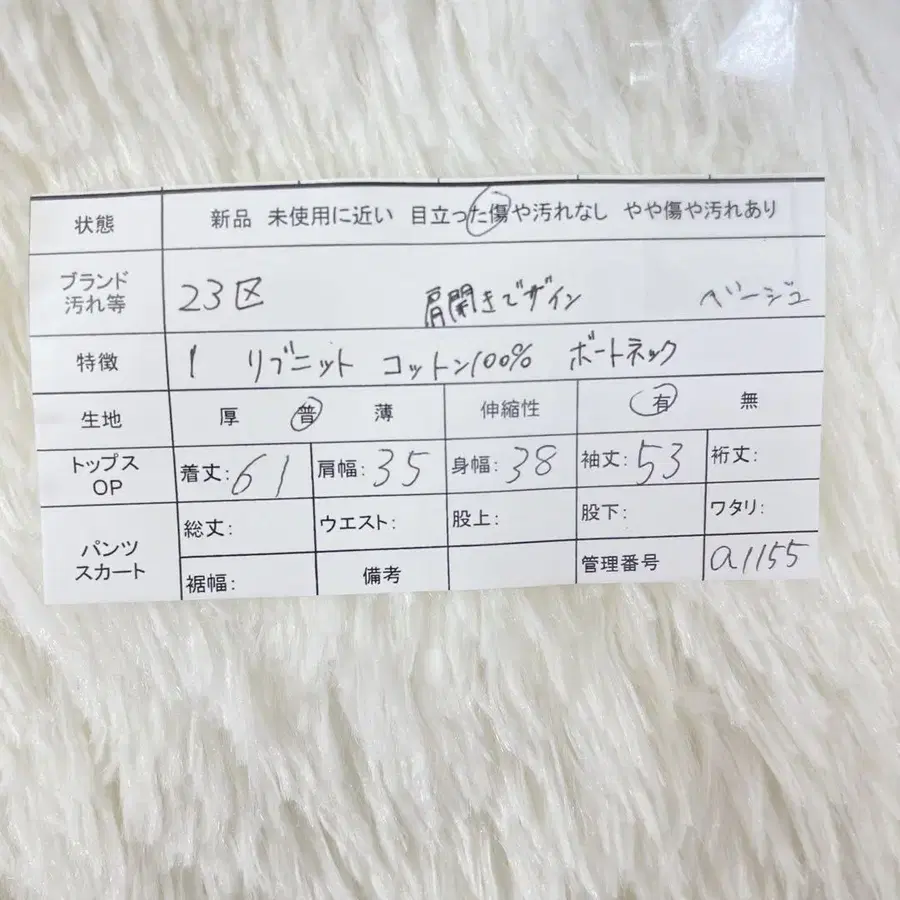 状態 新品 未使用に近い 目立った傷や汚れなし やや傷や汚れあり
ブランド
汚れ等 23区 肩開きデザイン ベージュ
特徴 1 リブニット コットン100% ボートネック
生地 厚 普 薄 伸縮性 有 無
トップス
OP 着丈:61 肩幅:35 身幅:38 袖丈:53 裄丈:
パンツ
スカート 総丈: ウエスト: 股上: 股下: ワタリ:
裾幅: 備考 管理番号 a1155